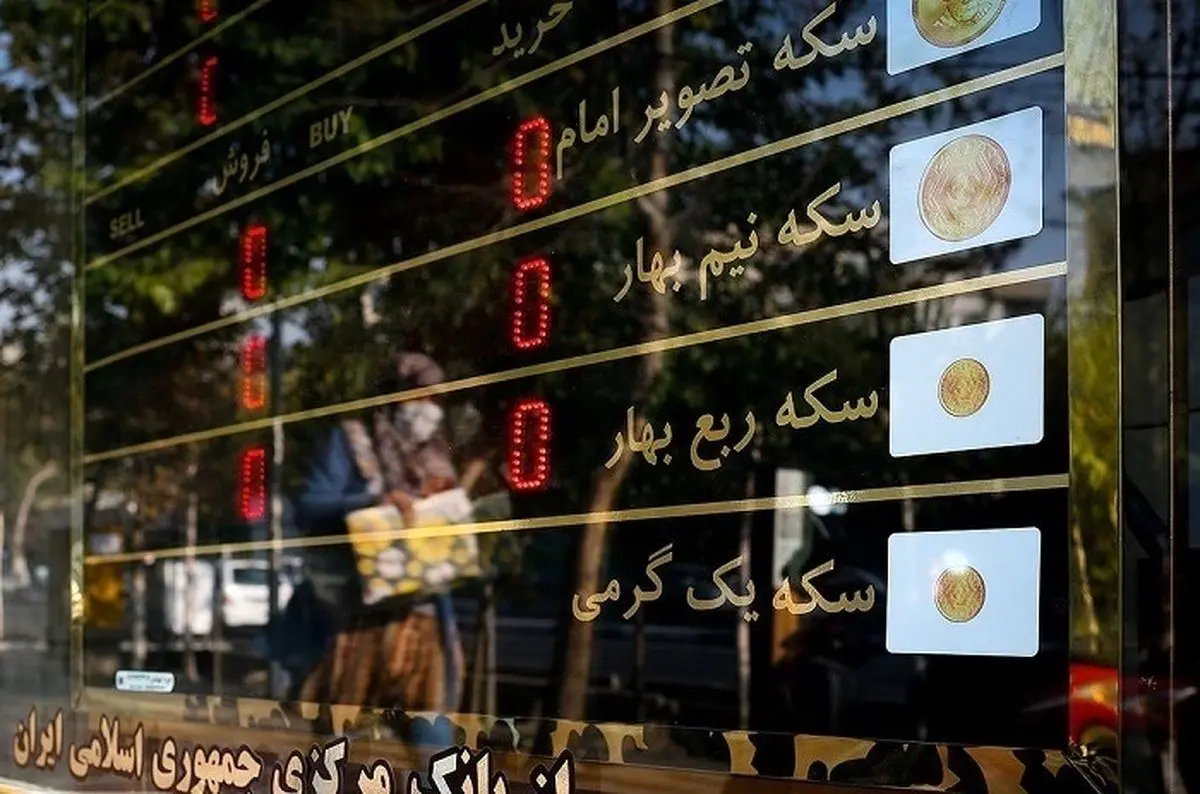 خرید
BUY
فروش
SELL
سکه تصویر امام 0 0
سکه نیم بهار 0 0
سکه ربع بهار 0 0
سکه یک گرمی
از بانک مرکزی جمهوری اسلامی ایران